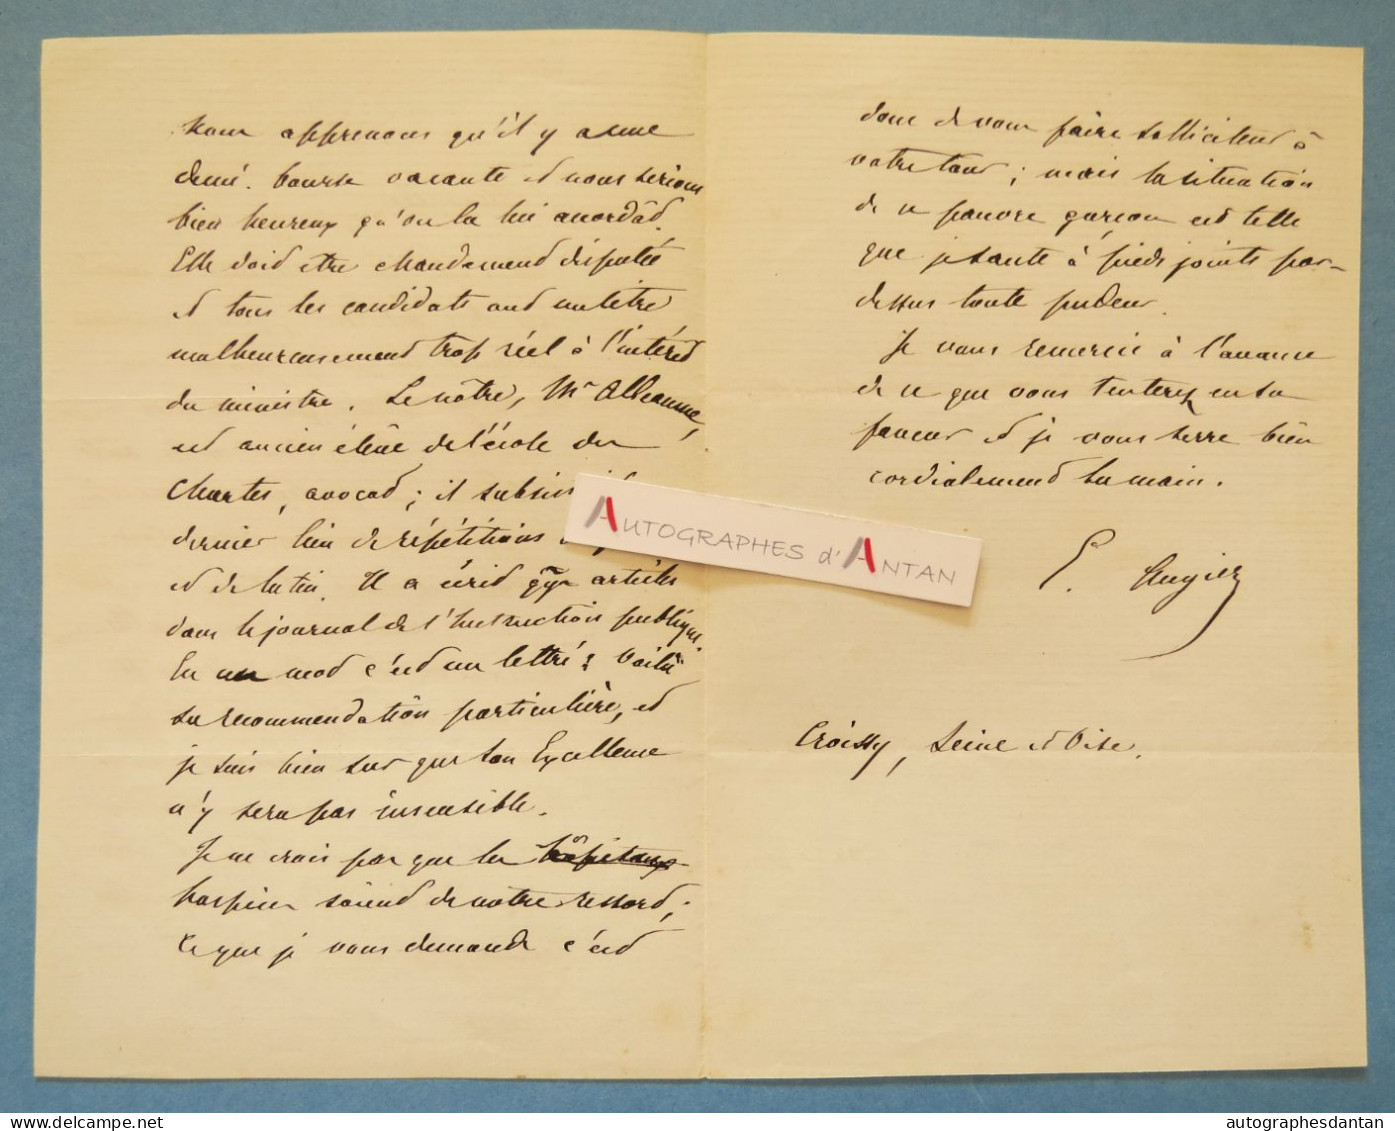 nous apprenons qu'il y a une
demi-bourse vacante et nous serions
bien heureux qu'on la lui accordât.
Elle doit être chaudement disputée
et tous les candidats ont un titre
malheureusement trop réel à l'intérêt
du ministre. Le nôtre, Mr
est ancien élève de l'école des
Chartes, avocat ; il
dernier lieu de répétitions
et de latin. Il a écrit qques articles
dans le journal de l'Instruction publique.
En un mot c'est un lettré : voilà
sa recommendation particulière, et
je suis bien sûr que son Excellence
n'y sera pas insensible.
Je ne crois pas que les hôpitaux
hospices soient de notre ressort ;
ce que je vous demande c'est
donc de vous faire solliciteur à
votre tour ; mais la situation
de ce pauvre garçon est telle
que je saute à pieds joints par-
dessus toute pudeur.
Je vous remercie à l'avance
de ce que vous tenterez en sa
faveur et je vous serre bien
cordialement la main.
E. Augier
Croissy, Seine et Oise.
AUTOGRAPHES d'ANTAN
delcampe.net
autographesdantan